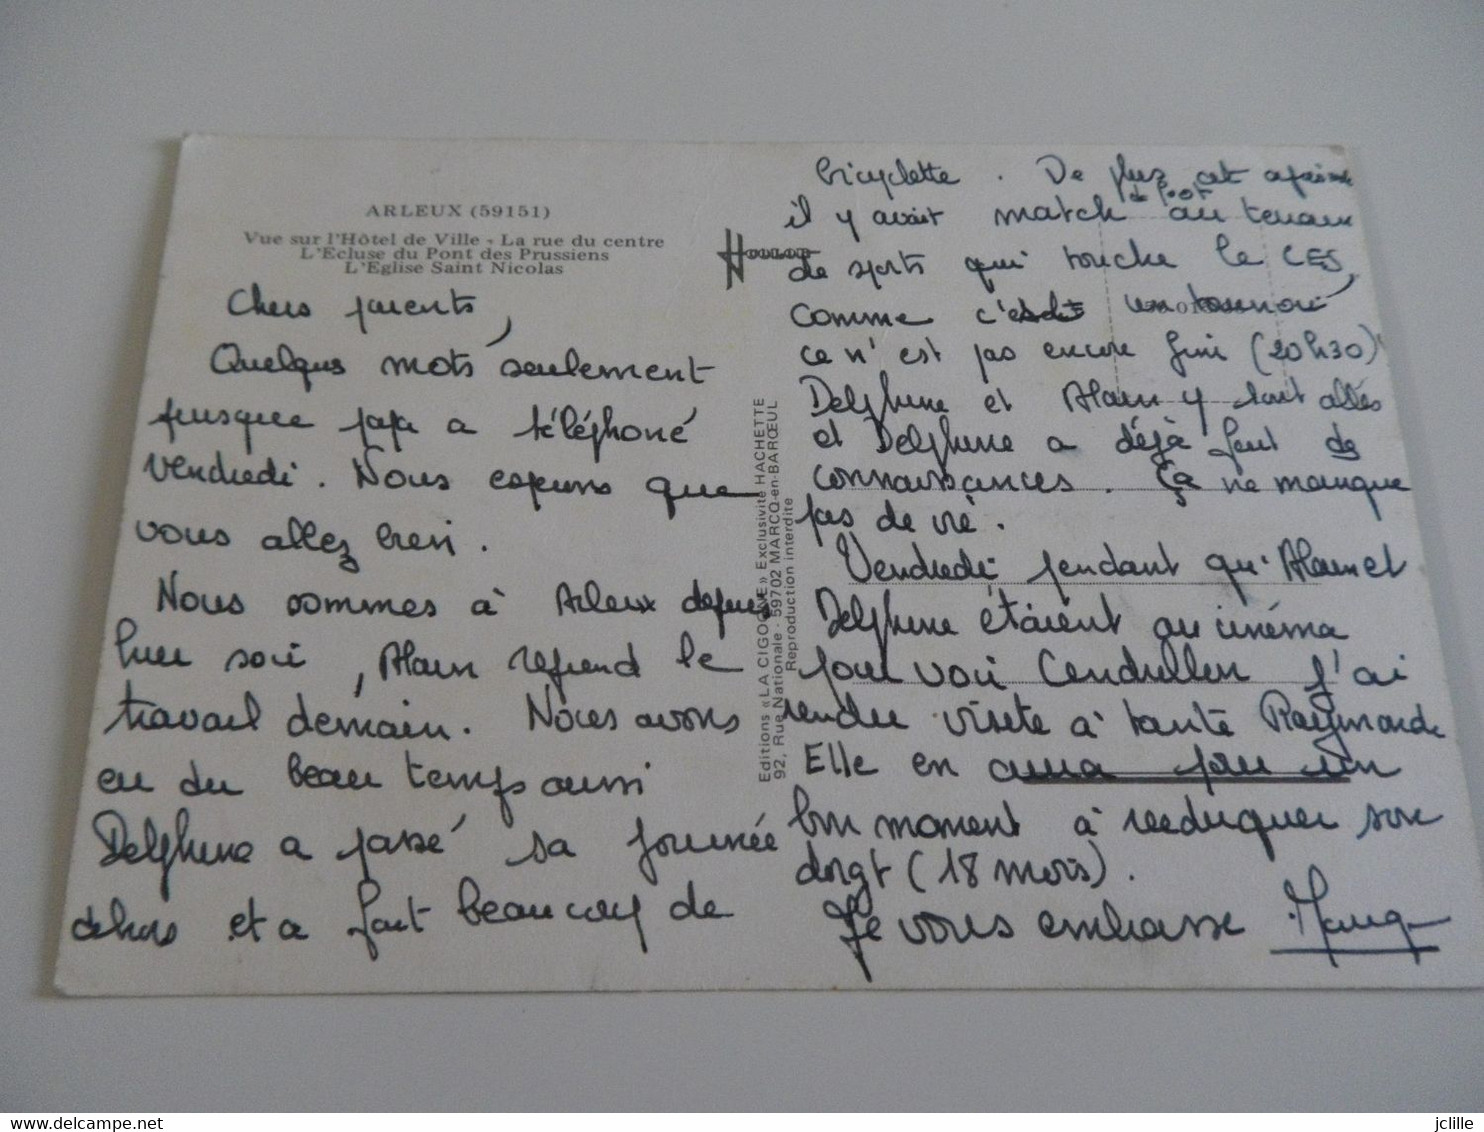 ARLEUX (59151)
Vue sur l'Hôtel de Ville - La rue du centre
L'Ecluse du Pont des Prussiens
L'Eglise Saint Nicolas
Chers parents,
Quelques mots seulement
puisque papa a téléphoné
vendredi. Nous espérons que
vous allez bien.
Nous sommes à Arleux depuis
hier soir, Alain reprend le
travail demain. Nous avons
eu du beau temps aussi
Delphine a passé sa journée
dehors et a fait beaucoup de
Editions «LA CIGOGNE» Exclusivité HACHETTE
92, Rue Nationale - 59702 MARCQ-en-BARŒUL
Reproduction interdite
bicyclette. De plus cet après
il y avait match de foot au terrain
de sports qui touche le CES,
comme c'était un tournoi
ce n'est pas encore fini (20h30)
Delphine et Alain y sont allés
et Delphine a déjà fait des
connaissances. Ça ne manque
pas de vie.
Vendredi pendant qu'Alain et
Delphine étaient au cinéma
pour voir Cendrillon j'ai
rendu visite à tante Raymonde
Elle en aura pour un
bon moment à rééduquer son
doigt (18 mois).
Je vous embrasse
delcampe.net
jclille